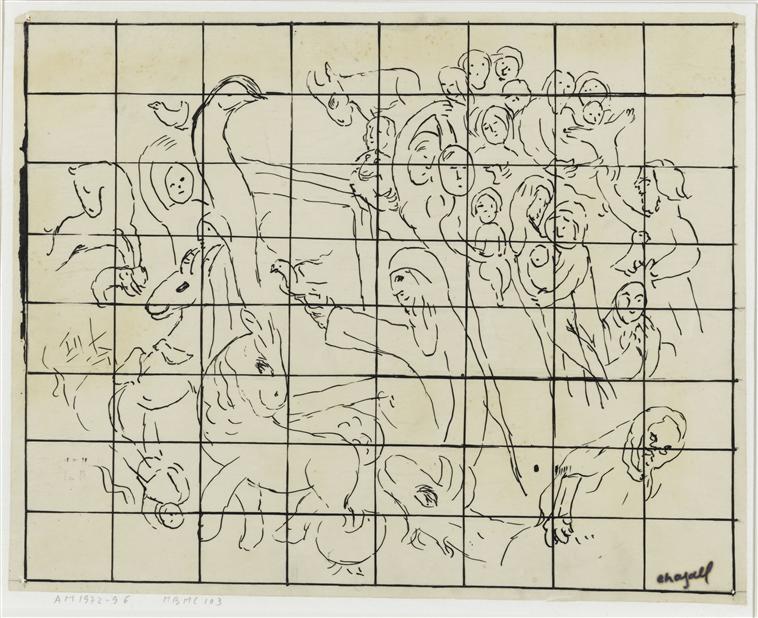 chagall
AM1972-96 MBMC 103